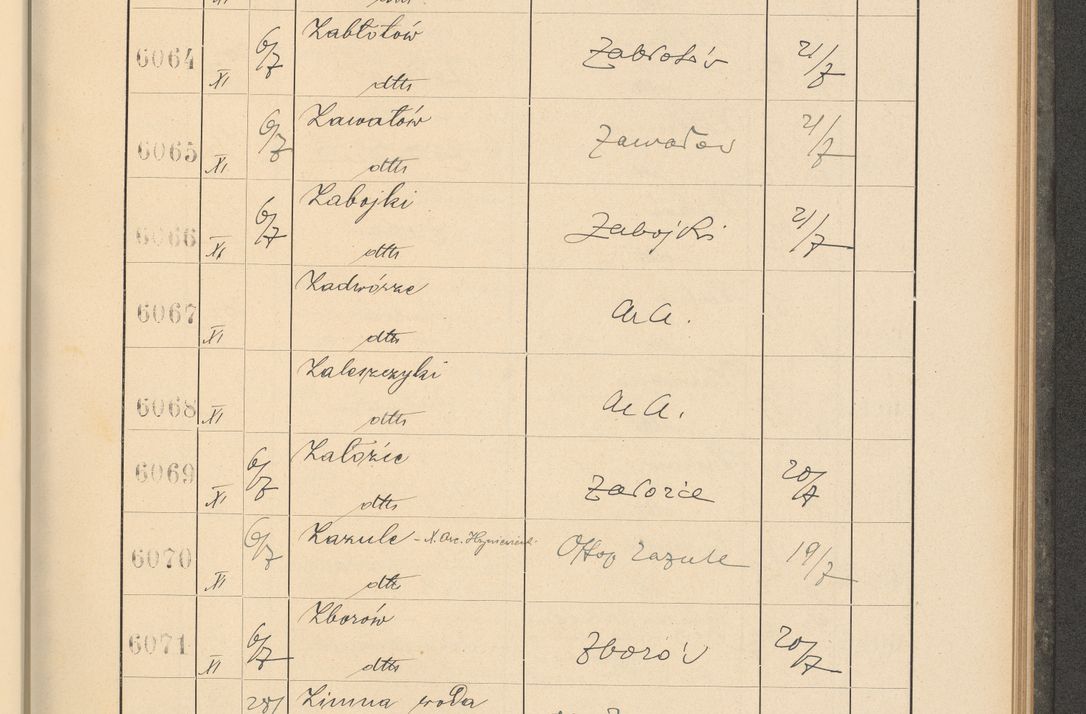 6064 XI 6/7 Zabłotów dtto Zabłotów 21/7
6065 XI 6/7 Zawałów dtto Zawałow 21/7
6066 XI 6/7 Zabojki dtto Zabojki 21/7
6067 XI Zadwórze dtto
6068 XI Zaleszczyki dtto
6069 XI 6/7 Załozie dtto Załozie 20/7
6070 XI 6/7 Zazule dtto Zazule 19/7
6071 XI 6/7 Zborów dtto Zborów 20/7
Zimna woda